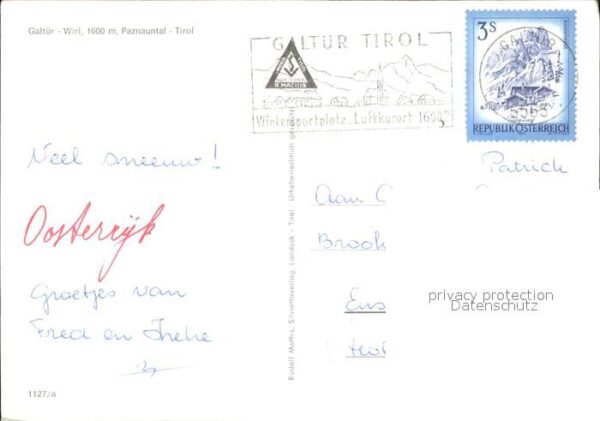 Galtür - Wirl, 1600 m, Paznauntal - Tirol
GALTÜR TIROL
R. MATHIS
Wintersportplatz Luftkurort 1600
3S
REPUBLIK ÖSTERREICH
6563
Veel sneeuw!
Oosterrijk
Groetjes van
Fred en
Rudolf Mathis, Silvrettaverlag, Landeck - Tirol. Urheberrechtlich geschützt
Patrick
Aan C
Brook
Ens
privacy protection
Datenschutz
1127/a